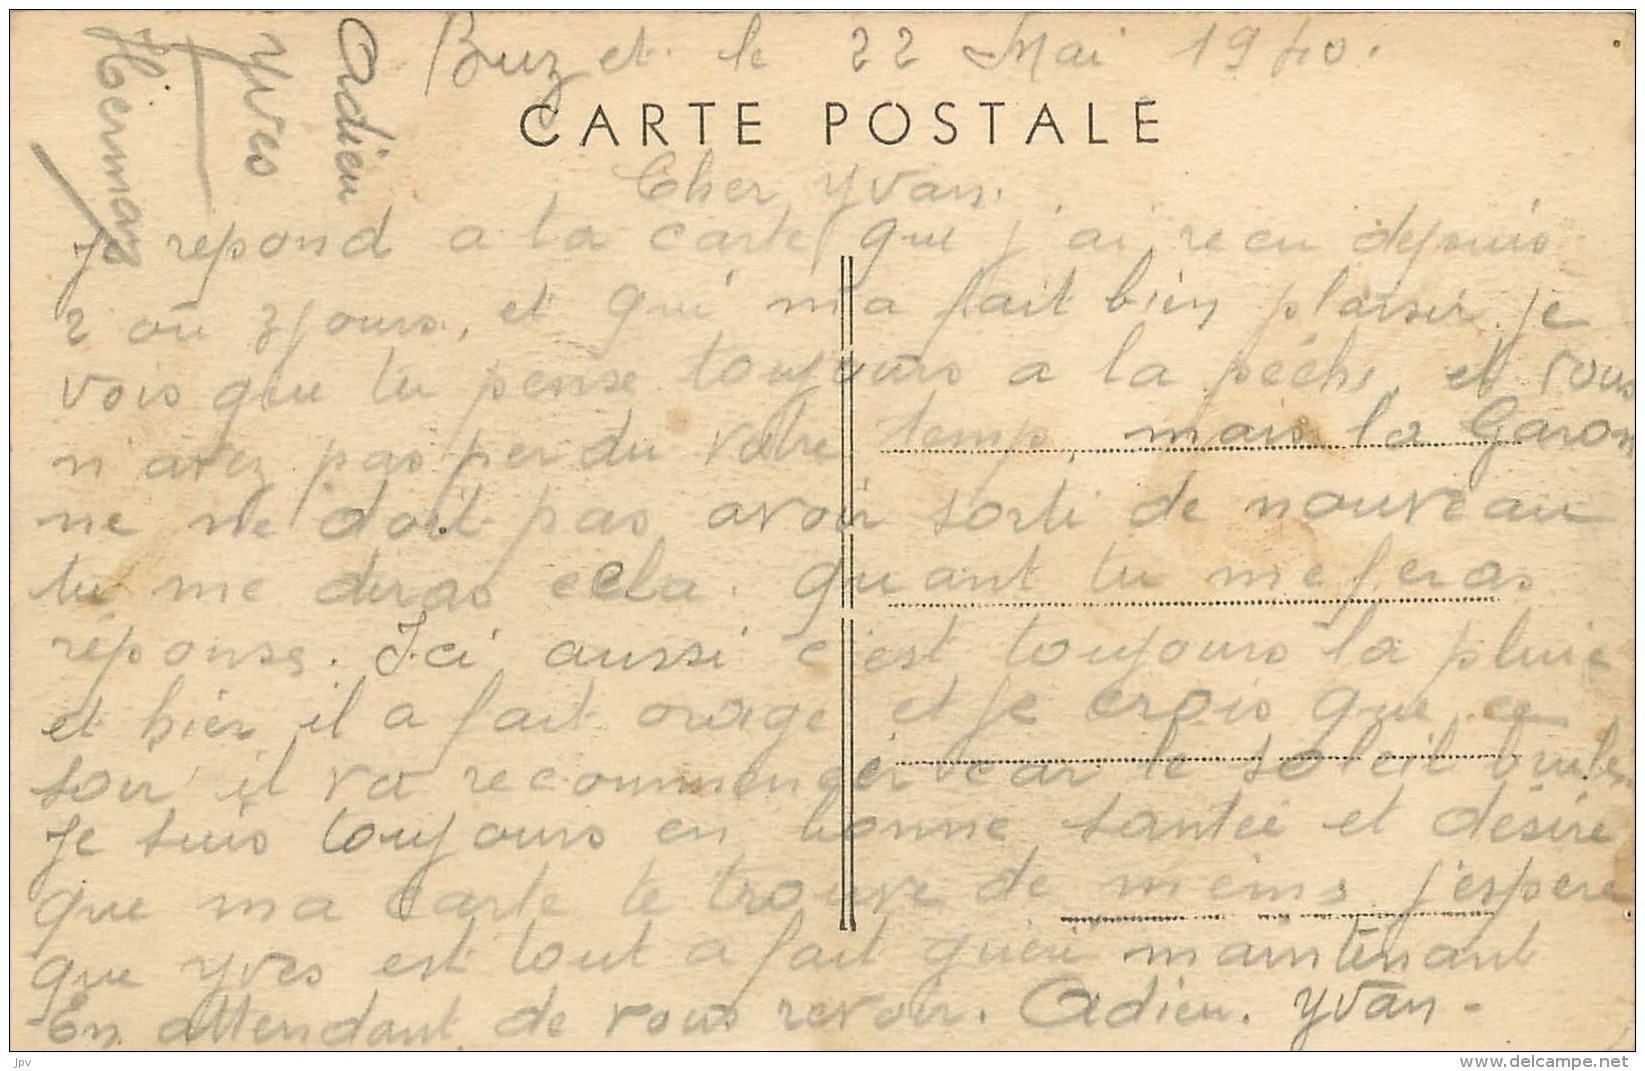 Buzet le 22 Mai 1940.
CARTE POSTALE
Cher Yvan.
Je repond a la carte que j'ai recu depuis
2 ou 3 jours, et qui m'a fait bien plaisir. je
vois que tu pense toujours a la pêche, et vous
n'avez pas perdu votre temp, mais la Garon
ne ne doit pas avoir sorti de nouveau
tu me diras cela. quant tu me feras
réponse. Ici aussi c'est toujours la pluie
et hier il a fait orage et je crois que ce
soir il va recommencer car le soleil brule.
Je suis toujours en bonne santée et désire
que ma carte te trouve de même. j'espère
que Yves est tout a fait guéri maintenant
En attendant de vous revoir. Adieu. Yvan-
Adieu
Yves
Herman
jpv
www.delcampe.net